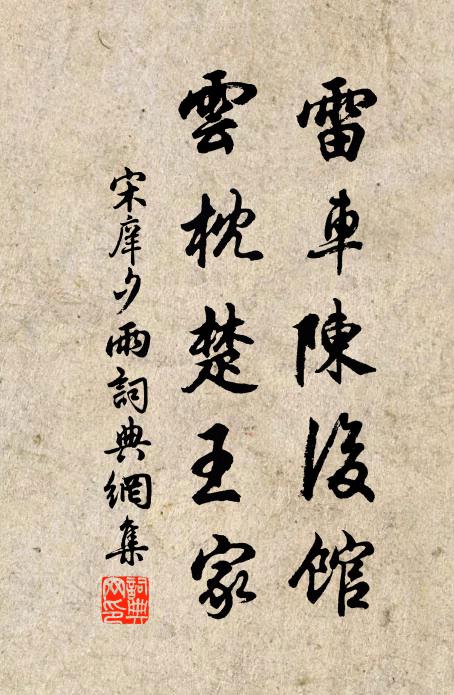 雷車陳後館
雲枕楚王家
宋庠夕雨詞典網集
詞典網印